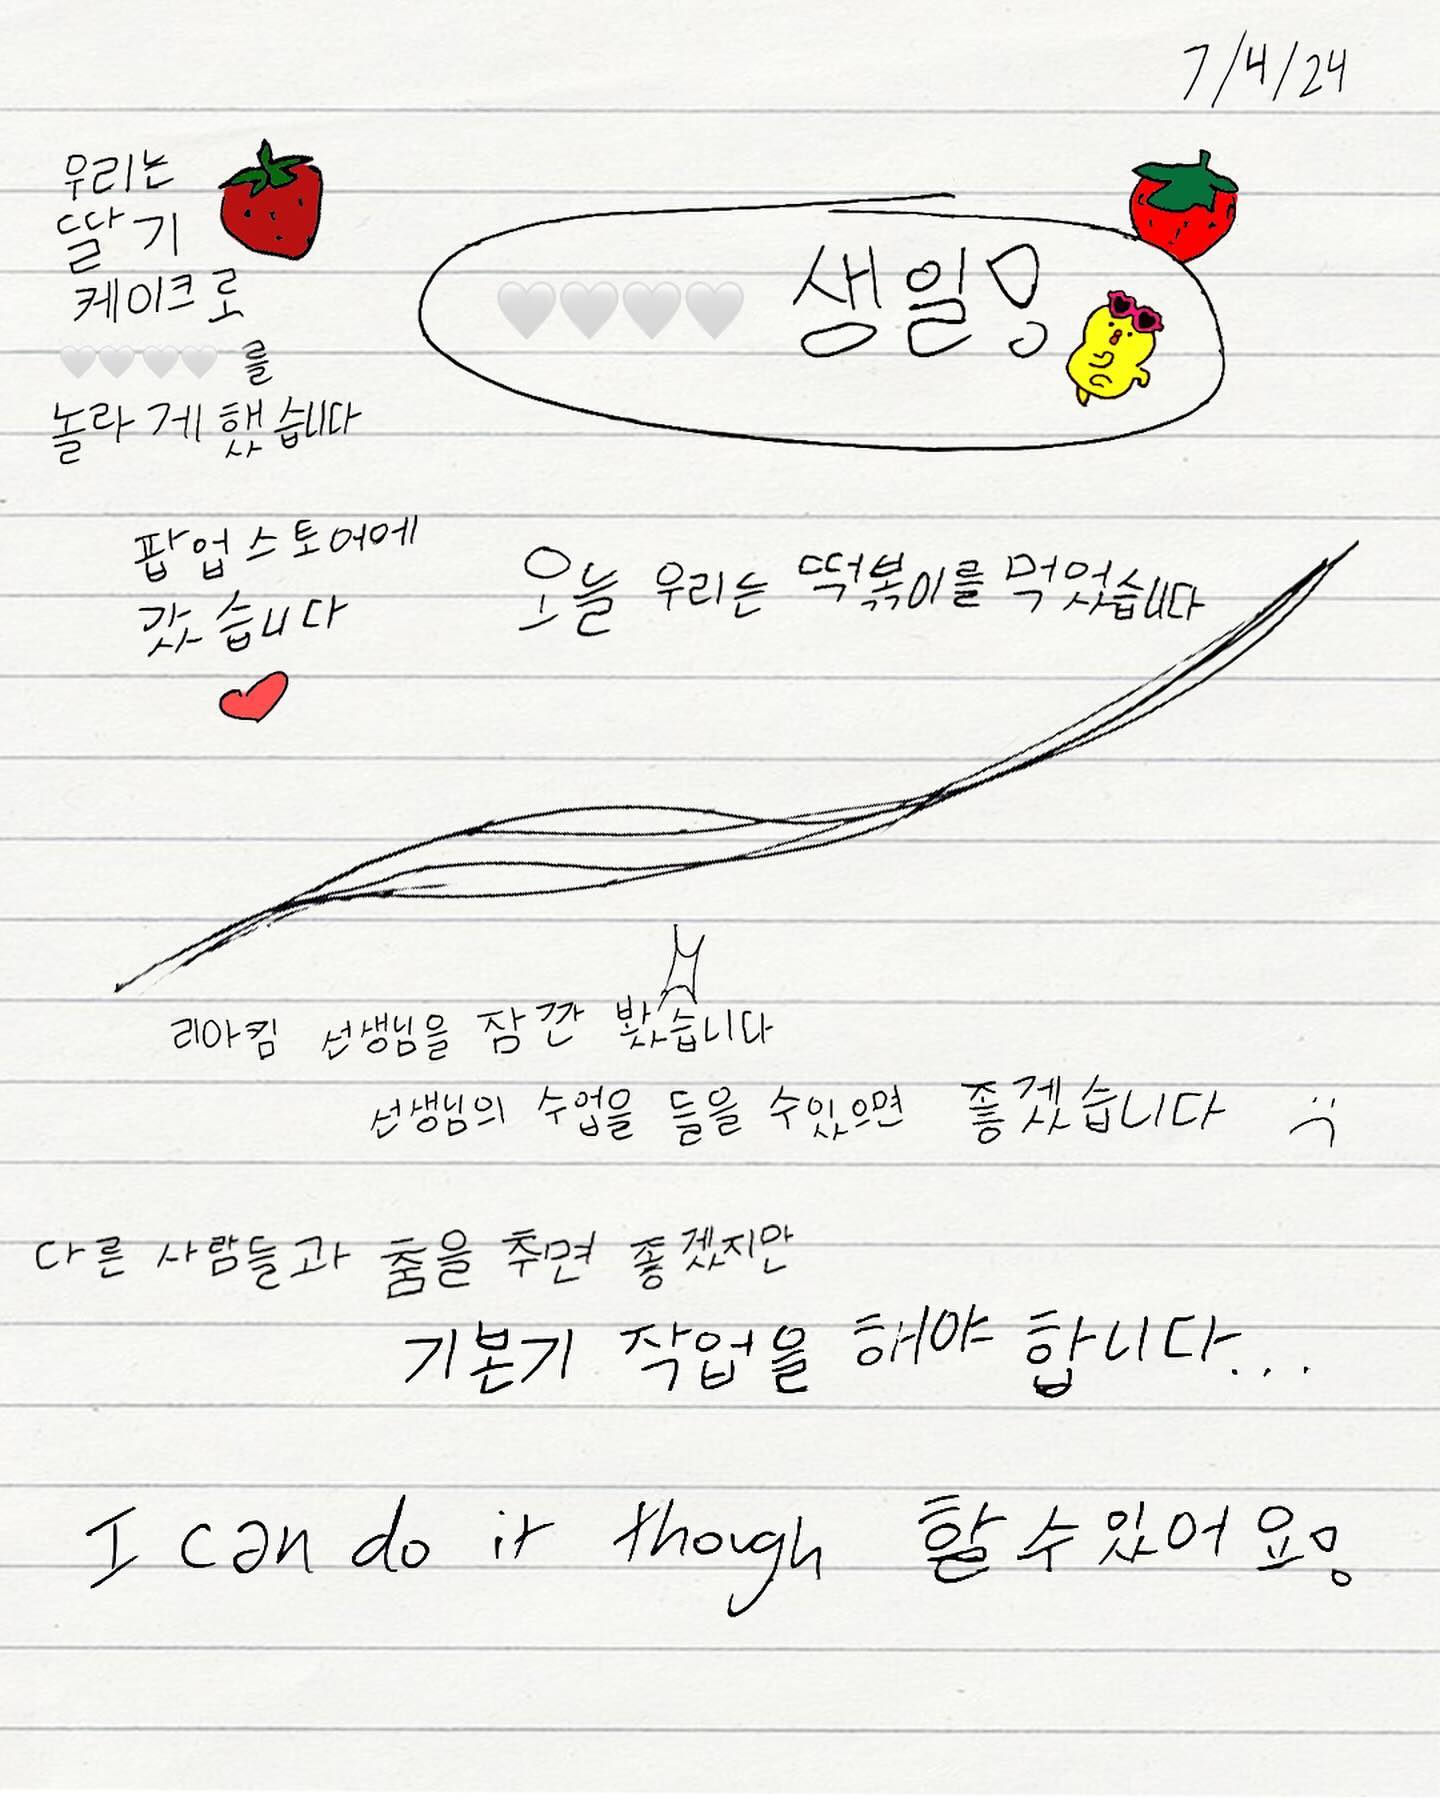 7/4/24
우리는
딸기
케이크로
🤍🤍🤍🤍를
놀라게 했습니다
🤍🤍🤍🤍 생일!
팝업스토어에
갔습니다
오늘 우리는 떡볶이를 먹었습니다
리아킴 선생님을 잠깐 봤습니다
선생님의 수업을 들을 수있으면 좋겠습니다 :(
다른 사람들과 춤을 추면 좋겠지만
기본기 작업을 해야 합니다...
I can do it though 할수있어요!